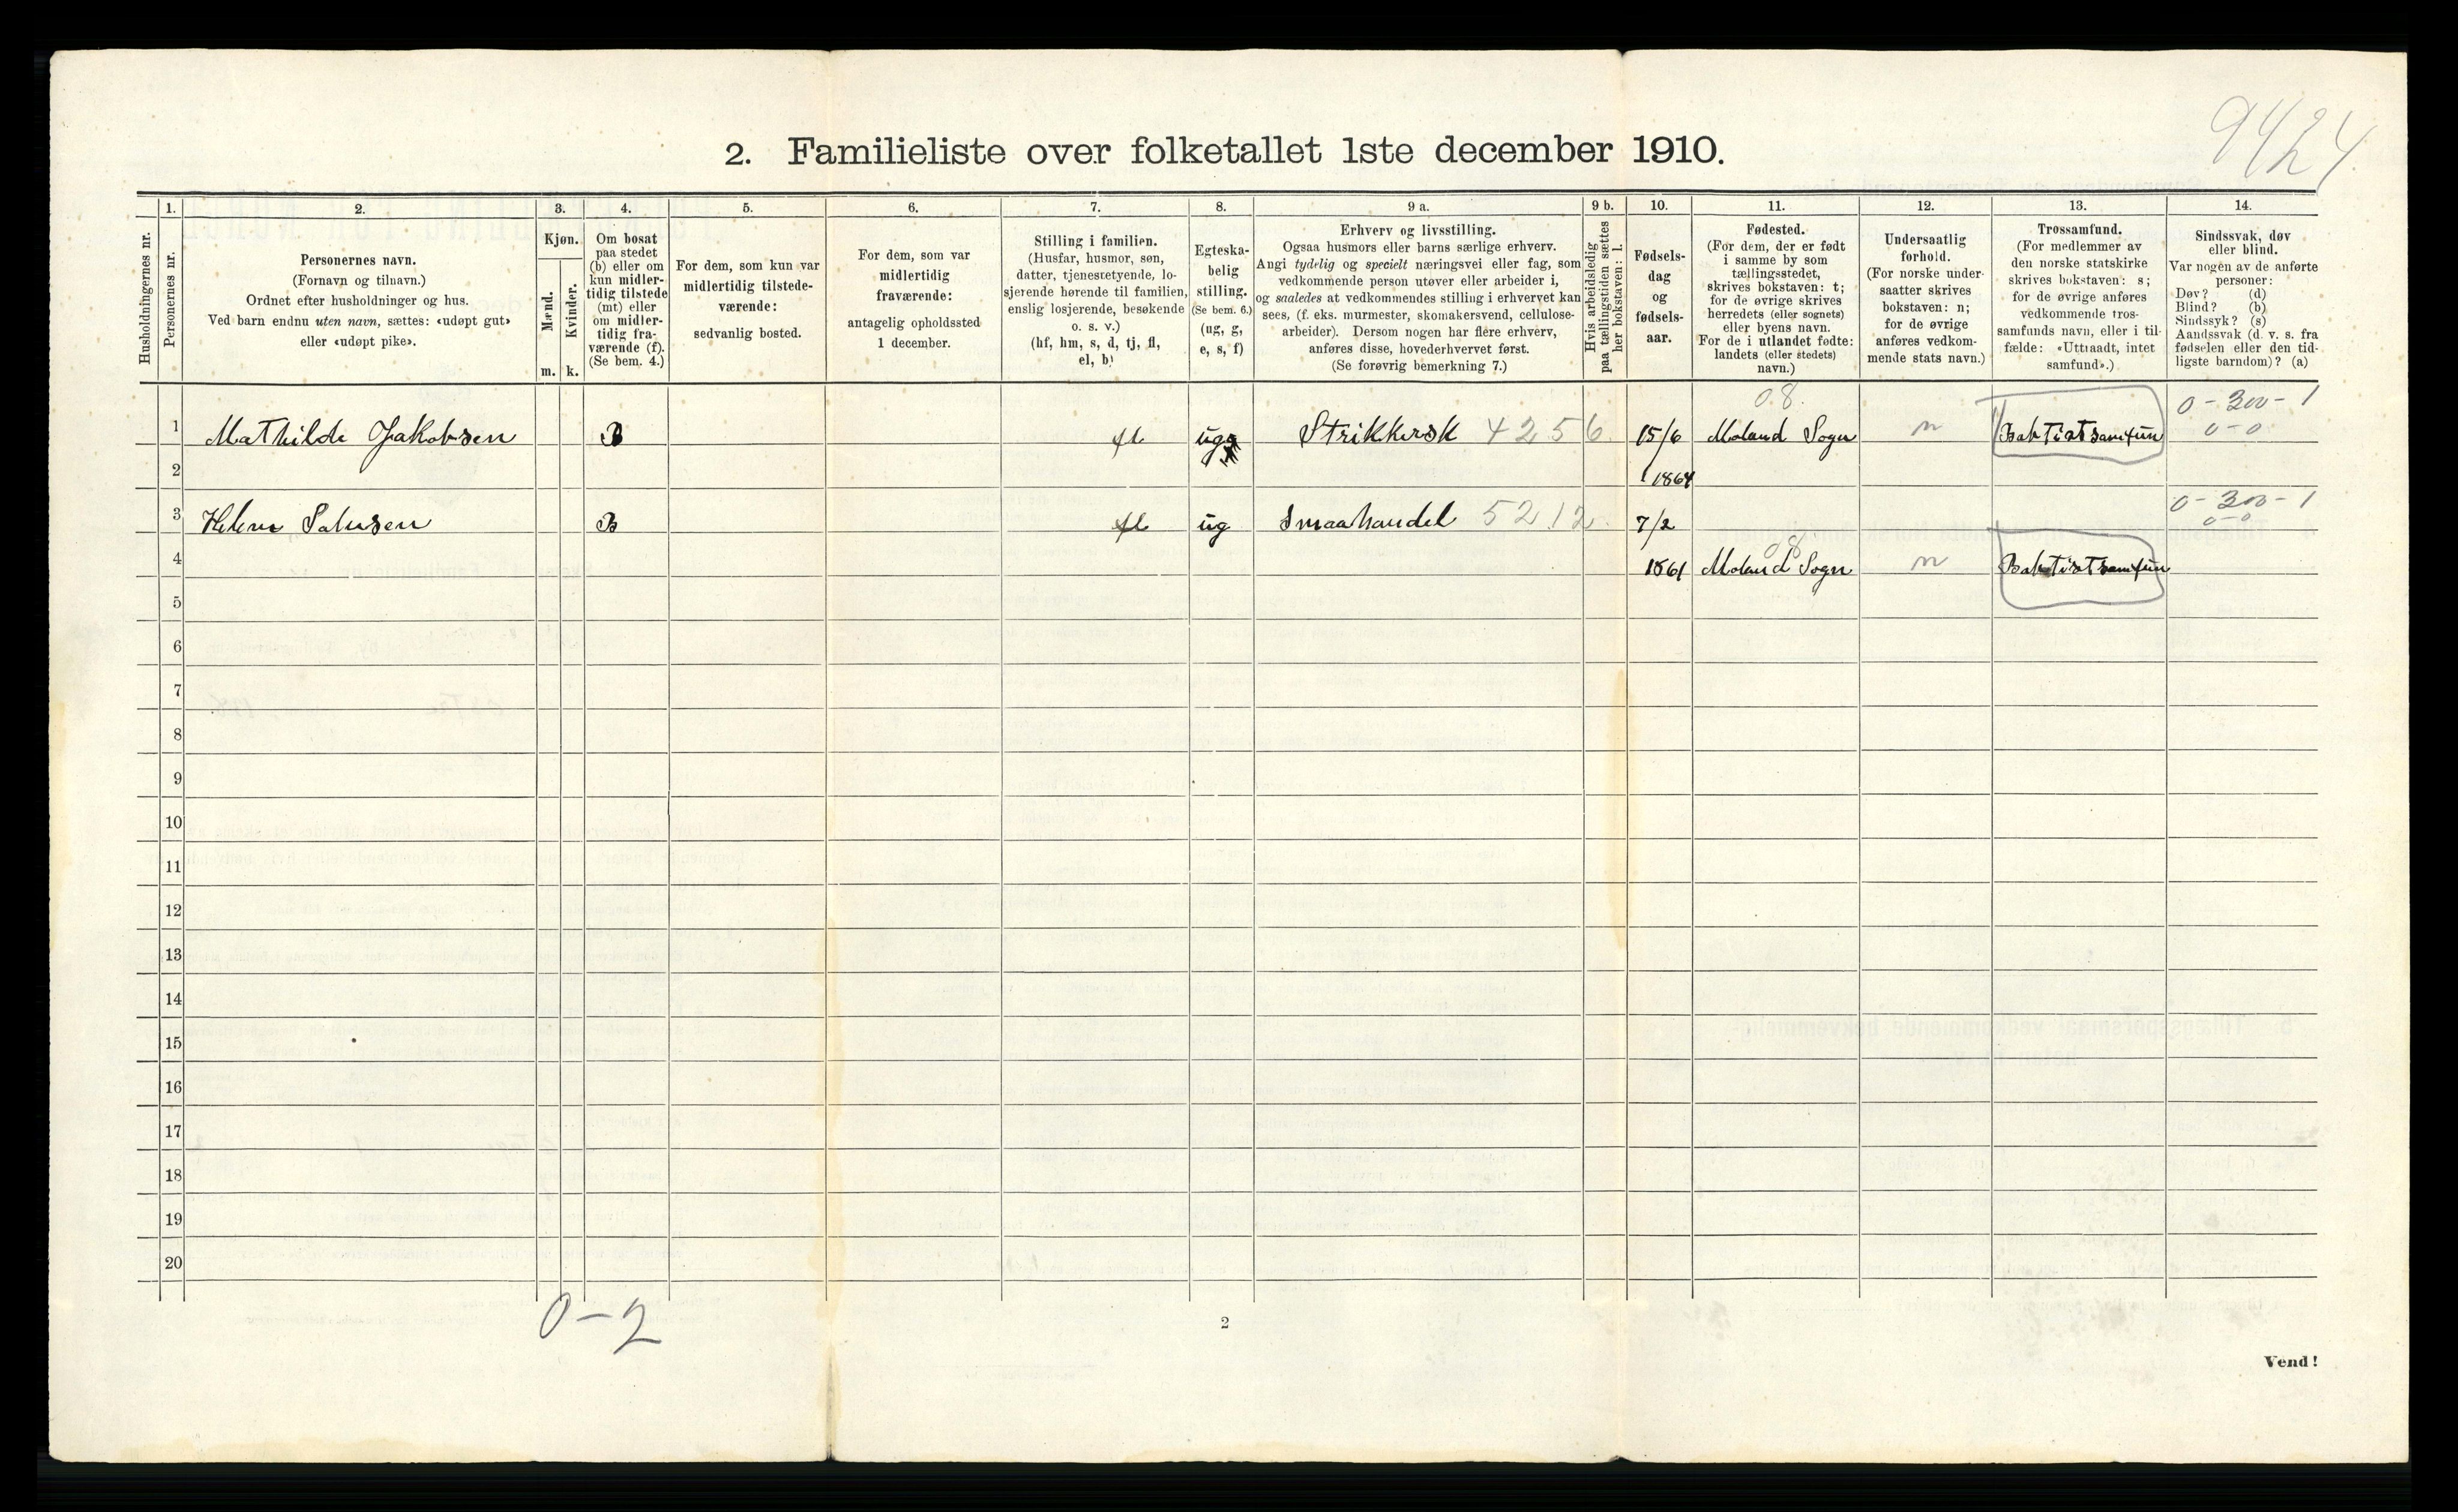 9424
2. Familieliste over folketallet 1ste december 1910.
1. 2. 3. 4. 5. 6. 7. 8. 9 a. 9 b. 10. 11. 12. 13. 14.
Husholdningernes nr.
Personernes nr.
Personernes navn.
(Fornavn og tilnavn.)
Ordnet efter husholdninger og hus.
Ved barn endnu uten navn, sættes: «udøpt gut»
eller «udøpt pike».
Kjøn.
Mænd.
Kvinder.
m. k.
Om bosat
paa stedet
(b) eller om
kun midler-
tidig tilstede
(mt) eller
om midler-
tidig fra-
værende (f).
(Se bem. 4.)
For dem, som kun var
midlertidig tilstede-
værende:
sedvanlig bosted.
For dem, som var
midlertidig
fraværende:
antagelig opholdssted
1 december.
Stilling i familien.
(Husfar, husmor, søn,
datter, tjenestetyende, lo-
sjerende hørende til familien,
enslig losjerende, besøkende
o. s. v.)
(hf, hm, s, d, tj, fl,
el, b)
Egteska-
belig
stilling.
(Se bem. 6.)
(ug, g,
e, s, f)
Erhverv og livsstilling.
Ogsaa husmors eller barns særlige erhverv.
Angi tydelig og specielt næringsvei eller fag, som
vedkommende person utøver eller arbeider i,
og saaledes at vedkommendes stilling i erhvervet kan
sees, (f. eks. murmester, skomakersvend, cellulose-
arbeider). Dersom nogen har flere erhverv,
anføres disse, hovederhvervet først.
(Se forøvrig bemerkning 7.)
Hvis arbeidsledig
paa tællingstiden sættes
her bokstaven: l.
Fødsels-
dag
og
fødsels-
aar.
Fødested.
(For dem, der er født
i samme by som
tællingsstedet,
skrives bokstaven: t;
for de øvrige skrives
herredets (eller sognets)
eller byens navn.
For de i utlandet fødte:
landets (eller stedets)
navn.)
Undersaatlig
forhold.
(For norske under-
saatter skrives
bokstaven: n;
for de øvrige
anføres vedkom-
mende stats navn.)
Trossamfund.
(For medlemmer av
den norske statskirke
skrives bokstaven: s;
for de øvrige anføres
vedkommende tros-
samfunds navn, eller i til-
fælde: «Uttraadt, intet
samfund».)
Sindssvak, døv
eller blind.
Var nogen av de anførte
personer:
Døv? (d)
Blind? (b)
Sindssyk? (s)
Aandssvak (d. v. s. fra
fødselen eller den tid-
ligste barndom)? (a)
08. 0-300-1
1 Mathilde Jakobsen B fl ug Strikkersk 4256 15/6 Moland Sogn n Babtistsamfun 0-0
2 1864
0-300-1
3 B fl ug Smaahandel 5212 7/2 0-0
08
4 1861 Moland Sogn n Babtistsamfun
5
6
7
8
9
10
11
12
13
14
15
16
17
18
19
20
0-2
2
Vend!